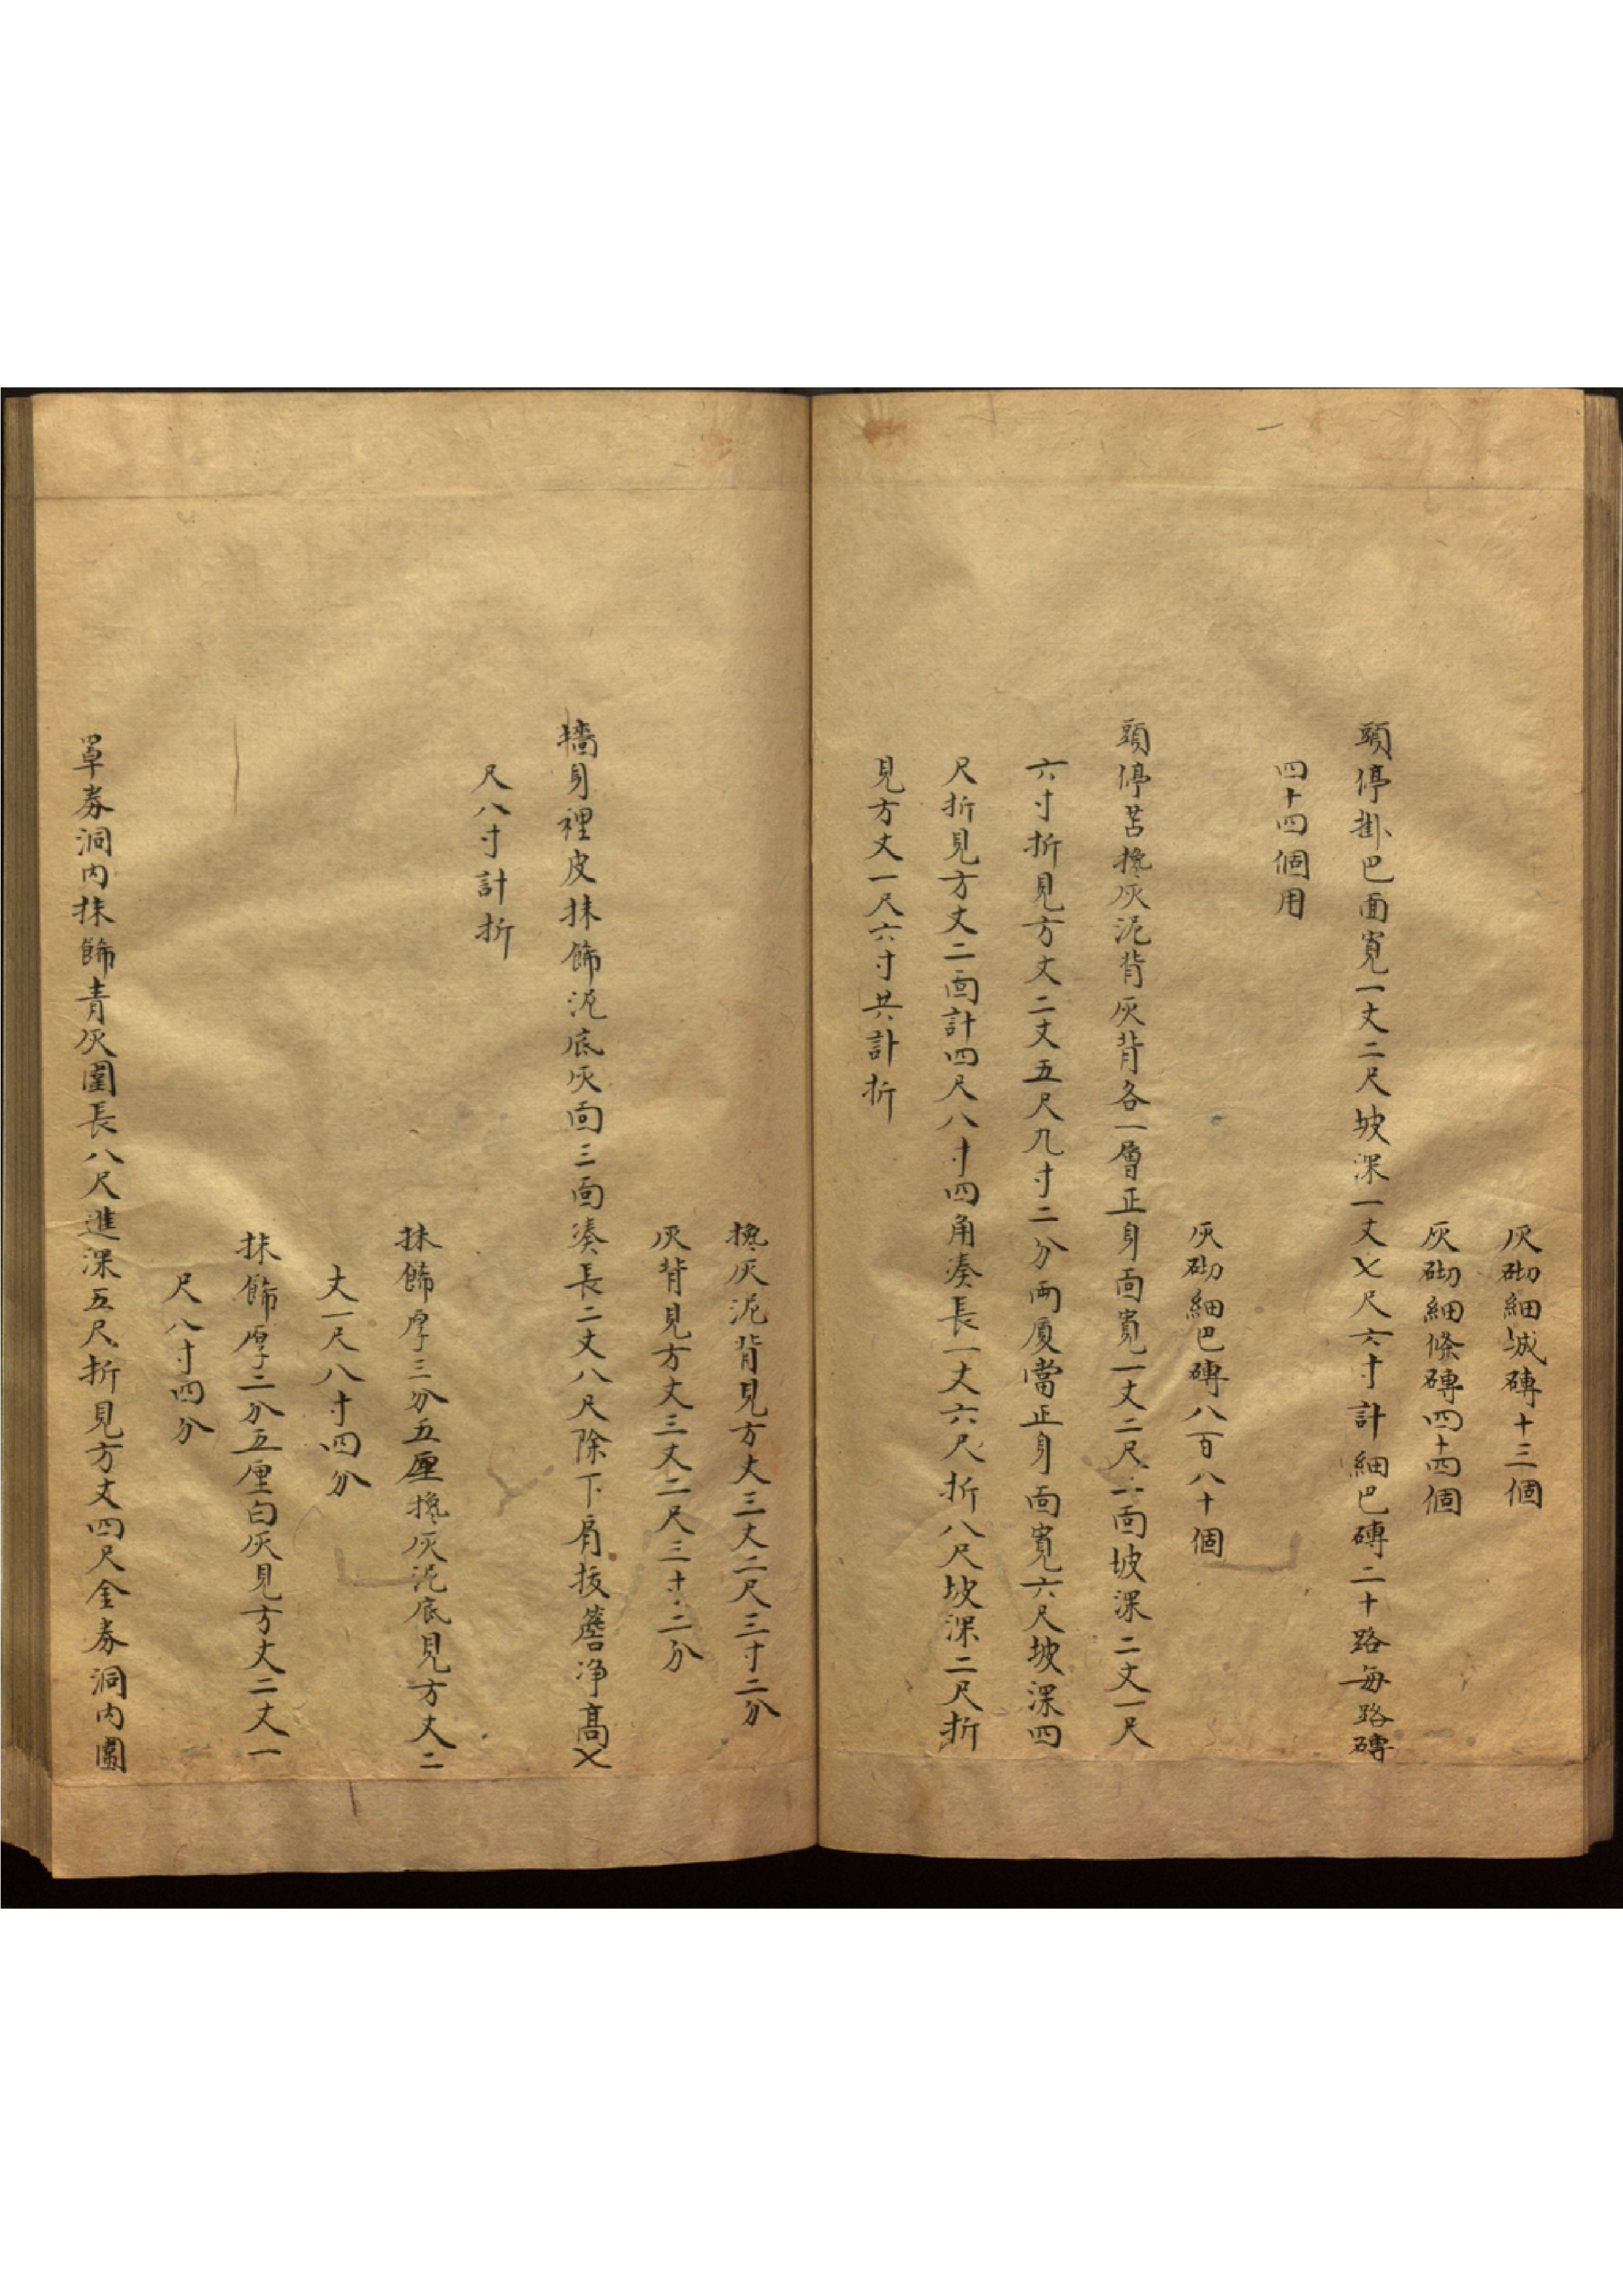 灰砌細城磚十三個
灰砌細條磚四十四個
頭停掛巴面寬一丈二尺坡深一丈〤尺六寸計細巴磚二十路每路磚
四十四個用
灰砌細巴磚八百八十個
頭停苫攙灰泥背灰背各一層正身面寬一丈二尺二面坡深二丈一尺
六寸折見方丈二丈五尺九寸二分両廈當正身面寬六尺坡深四
尺折見方丈二面計四尺八寸四角湊長一丈六尺折八尺坡深二尺折
見方丈一尺六寸共計折
攙灰泥背見方丈三丈二尺三寸二分
灰背見方丈三丈二尺三寸二分
墻身裡皮抹飾泥底灰面三面湊長二丈八尺除下肩拔簷净髙〤
尺八寸計折
抹飾厚三分五厘攙灰泥底見方丈二
丈一尺八寸四分
抹飾厚二分五厘白灰見方丈二丈一
尺八寸四分
罩券洞内抹飾青灰圍長八尺進深五尺折見方丈四尺金券洞内圍